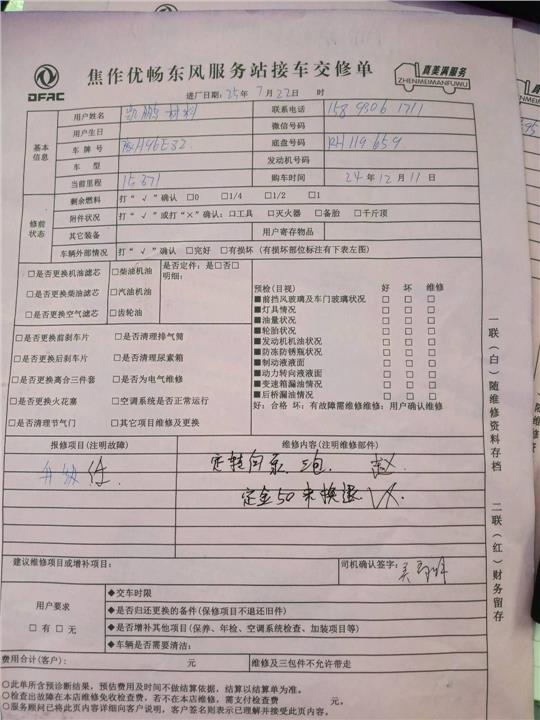 DFAC
焦作优畅东风服务站接车交修单
真美满服务
ZHENMEIMANFUWU
进厂日期：25年 7月 22日 时
基本信息
用户姓名 凯鹏材料 联系电话 158 9306 1711
用户生日 微信号码
车牌号 豫H96E32 底盘号码 RH119659
车型 发动机号码
当前里程 15371 购车时间 24年12月11日
修前状态
剩余燃料 打“√”确认 □0 □1/4 □1/2 □1
附件状况 打“√”或打“×”确认：□工具 □灭火器 □备胎 □千斤顶
其它装备 用户寄存物品
车辆外部情况 打“√”确认 □完好 □有损坏（有损坏部位标注有下表左图）
□是否更换机油滤芯 □柴油机油 是否定件：是□否□
明细：
□是否更换柴油滤芯 □汽油机油
□是否更换空气滤芯 □齿轮油
□是否更换前刹车片 □是否清理排气筒
□是否更换后刹车片 □是否清理尿素箱
□是否更换离合三件套 □是否为电气维修
□是否更换火花塞 □空调系统是否正常运行
□是否清理节气门 □其它项目维修及更换
预检(目视) 好 坏 维修
■前挡风玻璃及车门玻璃状况 □ □ □
■灯具情况 □ □ □
■油量状况 □ □ □
■轮胎状况 □ □ □
■发动机机油状况 □ □ □
■防冻防锈瓶状况 □ □ □
■制动液液面 □ □ □
■动力转向液液面 □ □ □
■变速箱漏油情况 □ □ □
■后桥漏油情况 □ □ □
好：合格 坏：有故障需维修维修：用户确认维修
报修项目(注明故障) 维修内容(注明维修部件)
升级 定转向泵 三包. 赵
定金50 未换退
建议维修项目或增补项目： 司机确认签字：
用户要求
□有 □无
◆交车时限
◆是否归还更换的备件(保修项目不退还旧件)
◆是否增补其他项目(保养、年检、空调系统检查、加装项目等)
◆车辆是否需要清洁：
费用合计(客户)： 元 维修及三包件不允许带走
○此单所含预诊断结果，预估费用及时间不做结算依据，结算以结算单为准。
○检查出故障在本店维修免收检查费，若不在本店维修，需支付检查费 元。
○服务顾问已将此页内容详细向客户说明，客户签名则表示已理解并接受此页内容。
一联（白）随维修资料存档
二联（红）财务留存